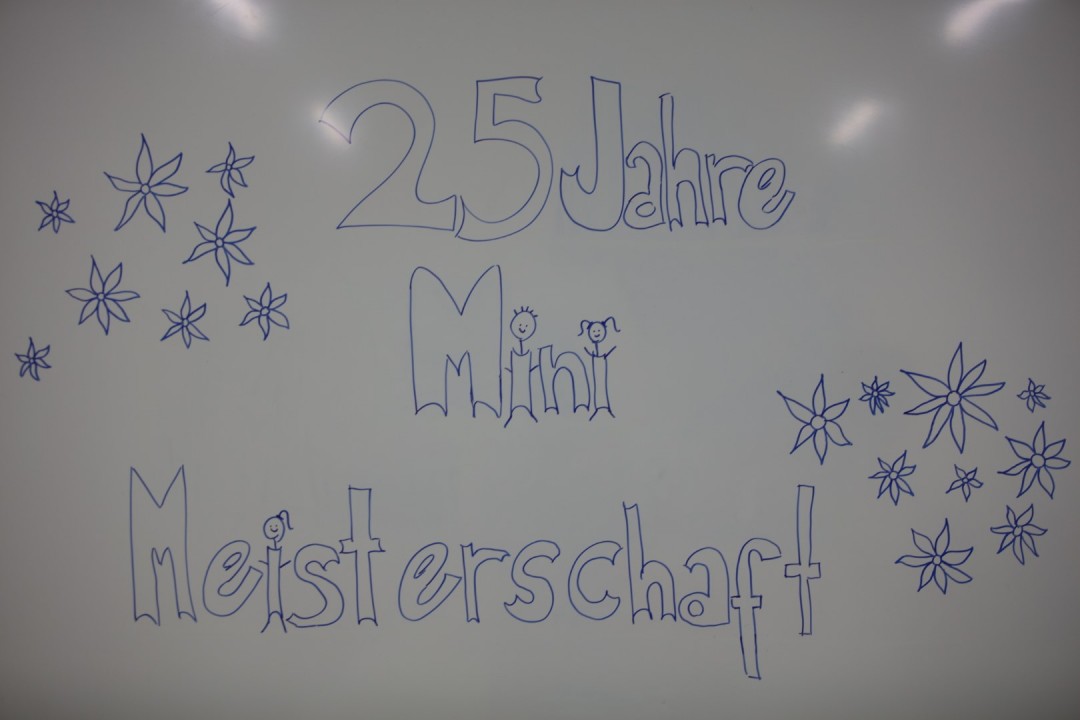 25 Jahre
Mini
Meisterschaft